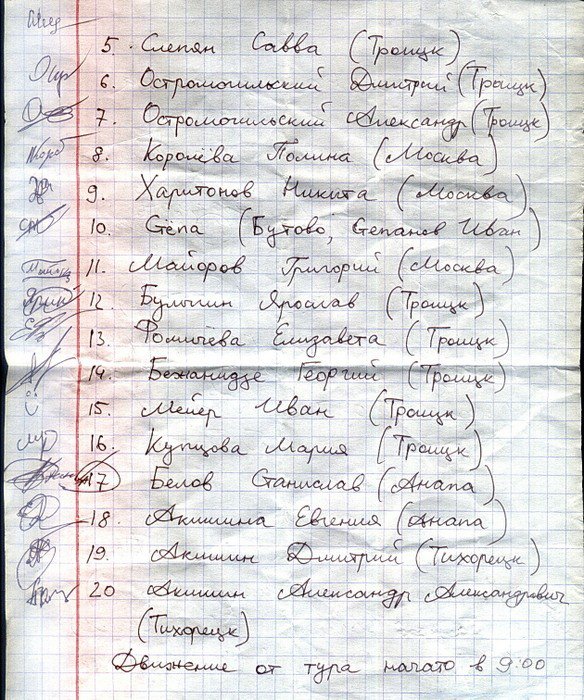 5. Слепян Савва (Троицк)
6. Остромогильский Дмитрий (Троицк)
7. Остромогильский Александр (Троицк)
8. Королёва Полина (Москва)
9. Харитонов Никита (Москва)
10. Стёпа (Бутово, Степанов Иван)
11. Майоров Григорий (Москва)
12. Булыгин Ярослав (Троицк)
13. Фомичёва Елизавета (Троицк)
14. Бежанидзе Георгий (Троицк)
15. Мейер Иван (Троицк)
16. Купцова Мария (Троицк)
17 Белов Станислав (Анапа)
18. Акишина Евгения (Анапа)
19. Акишин Дмитрий (Тихорецк)
20 Акишин Александр Александрович
(Тихорецк)
Движение от тура начато в 9:00